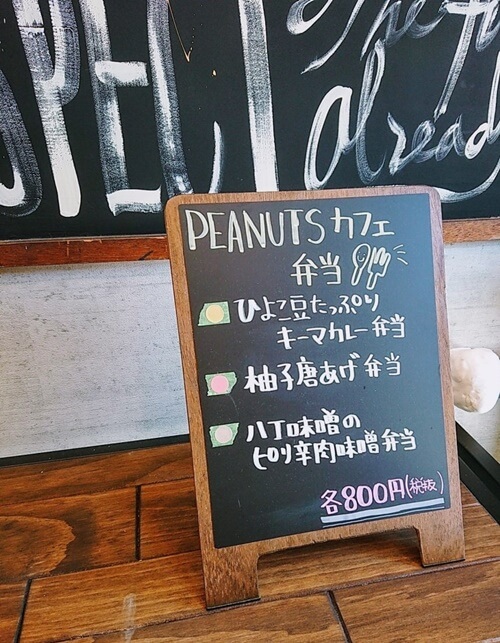 SPECI
already
PEANUTS カフェ
弁当
ひよこ豆たっぷり
キーマカレー弁当
柚子唐あげ弁当
八丁味噌の
ピリ辛肉味噌弁当
各800円(税抜)